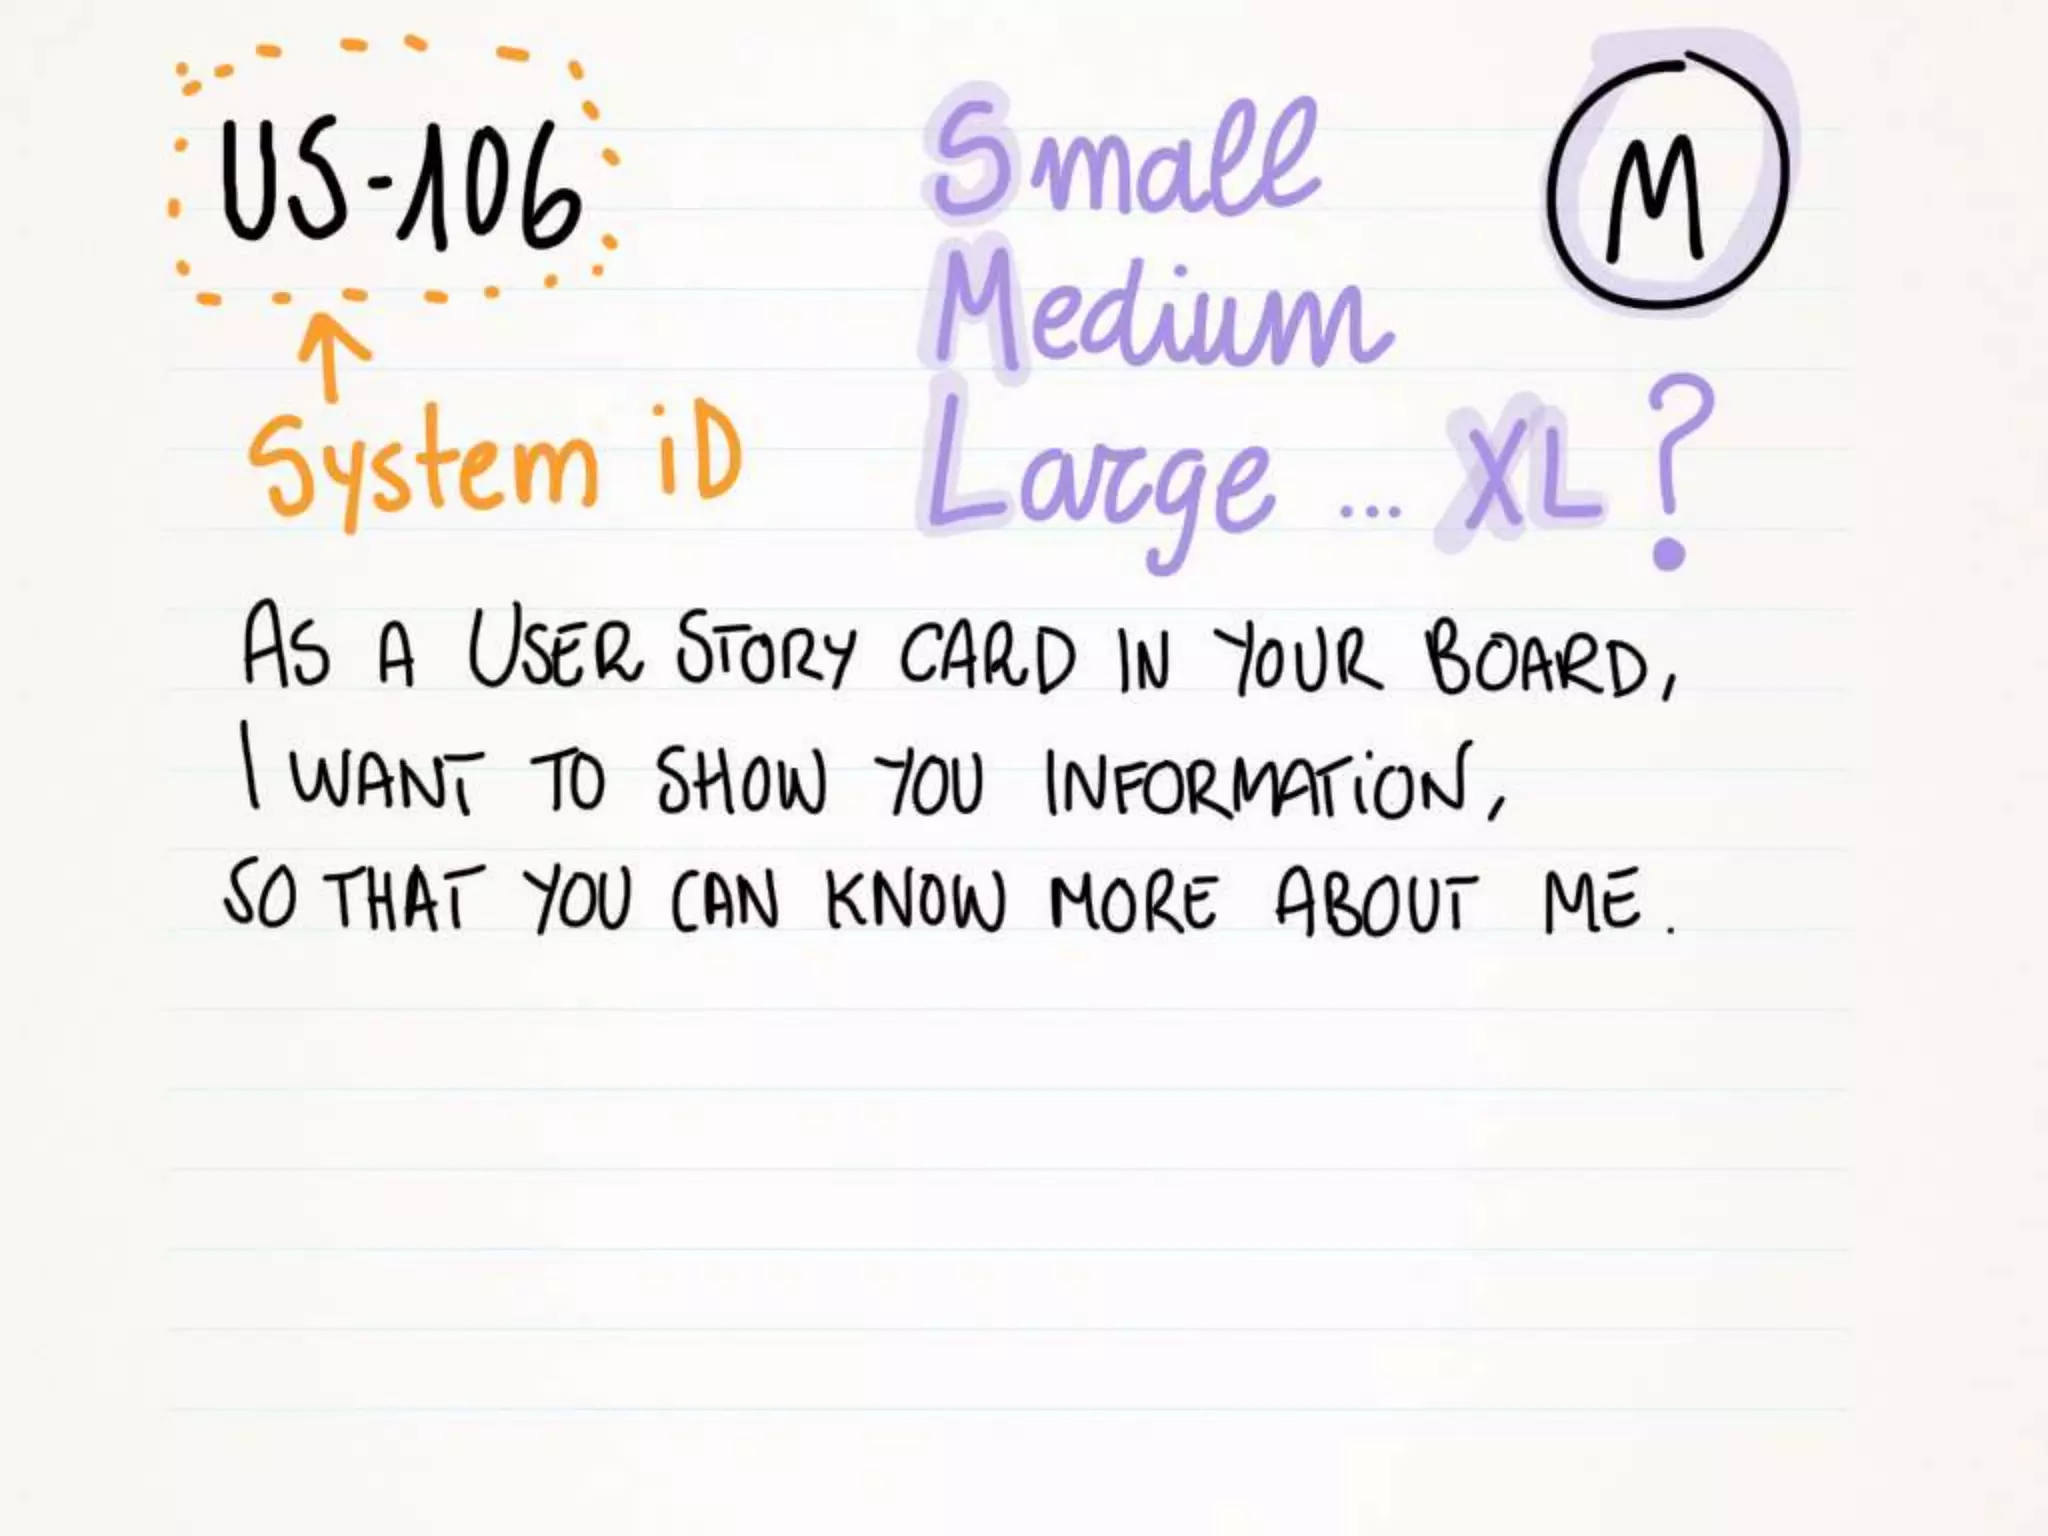 US-106
System iD
Small
Medium
Large ... XL ?
M
As a User Story card in your Board,
I want to show you information,
so that you can know more about me.